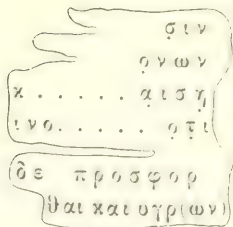 σιν
ονων
κ . . . . . . αιση
ινο. . . . . . οτι
δε προσφορ
θαι και υγρ(ων)